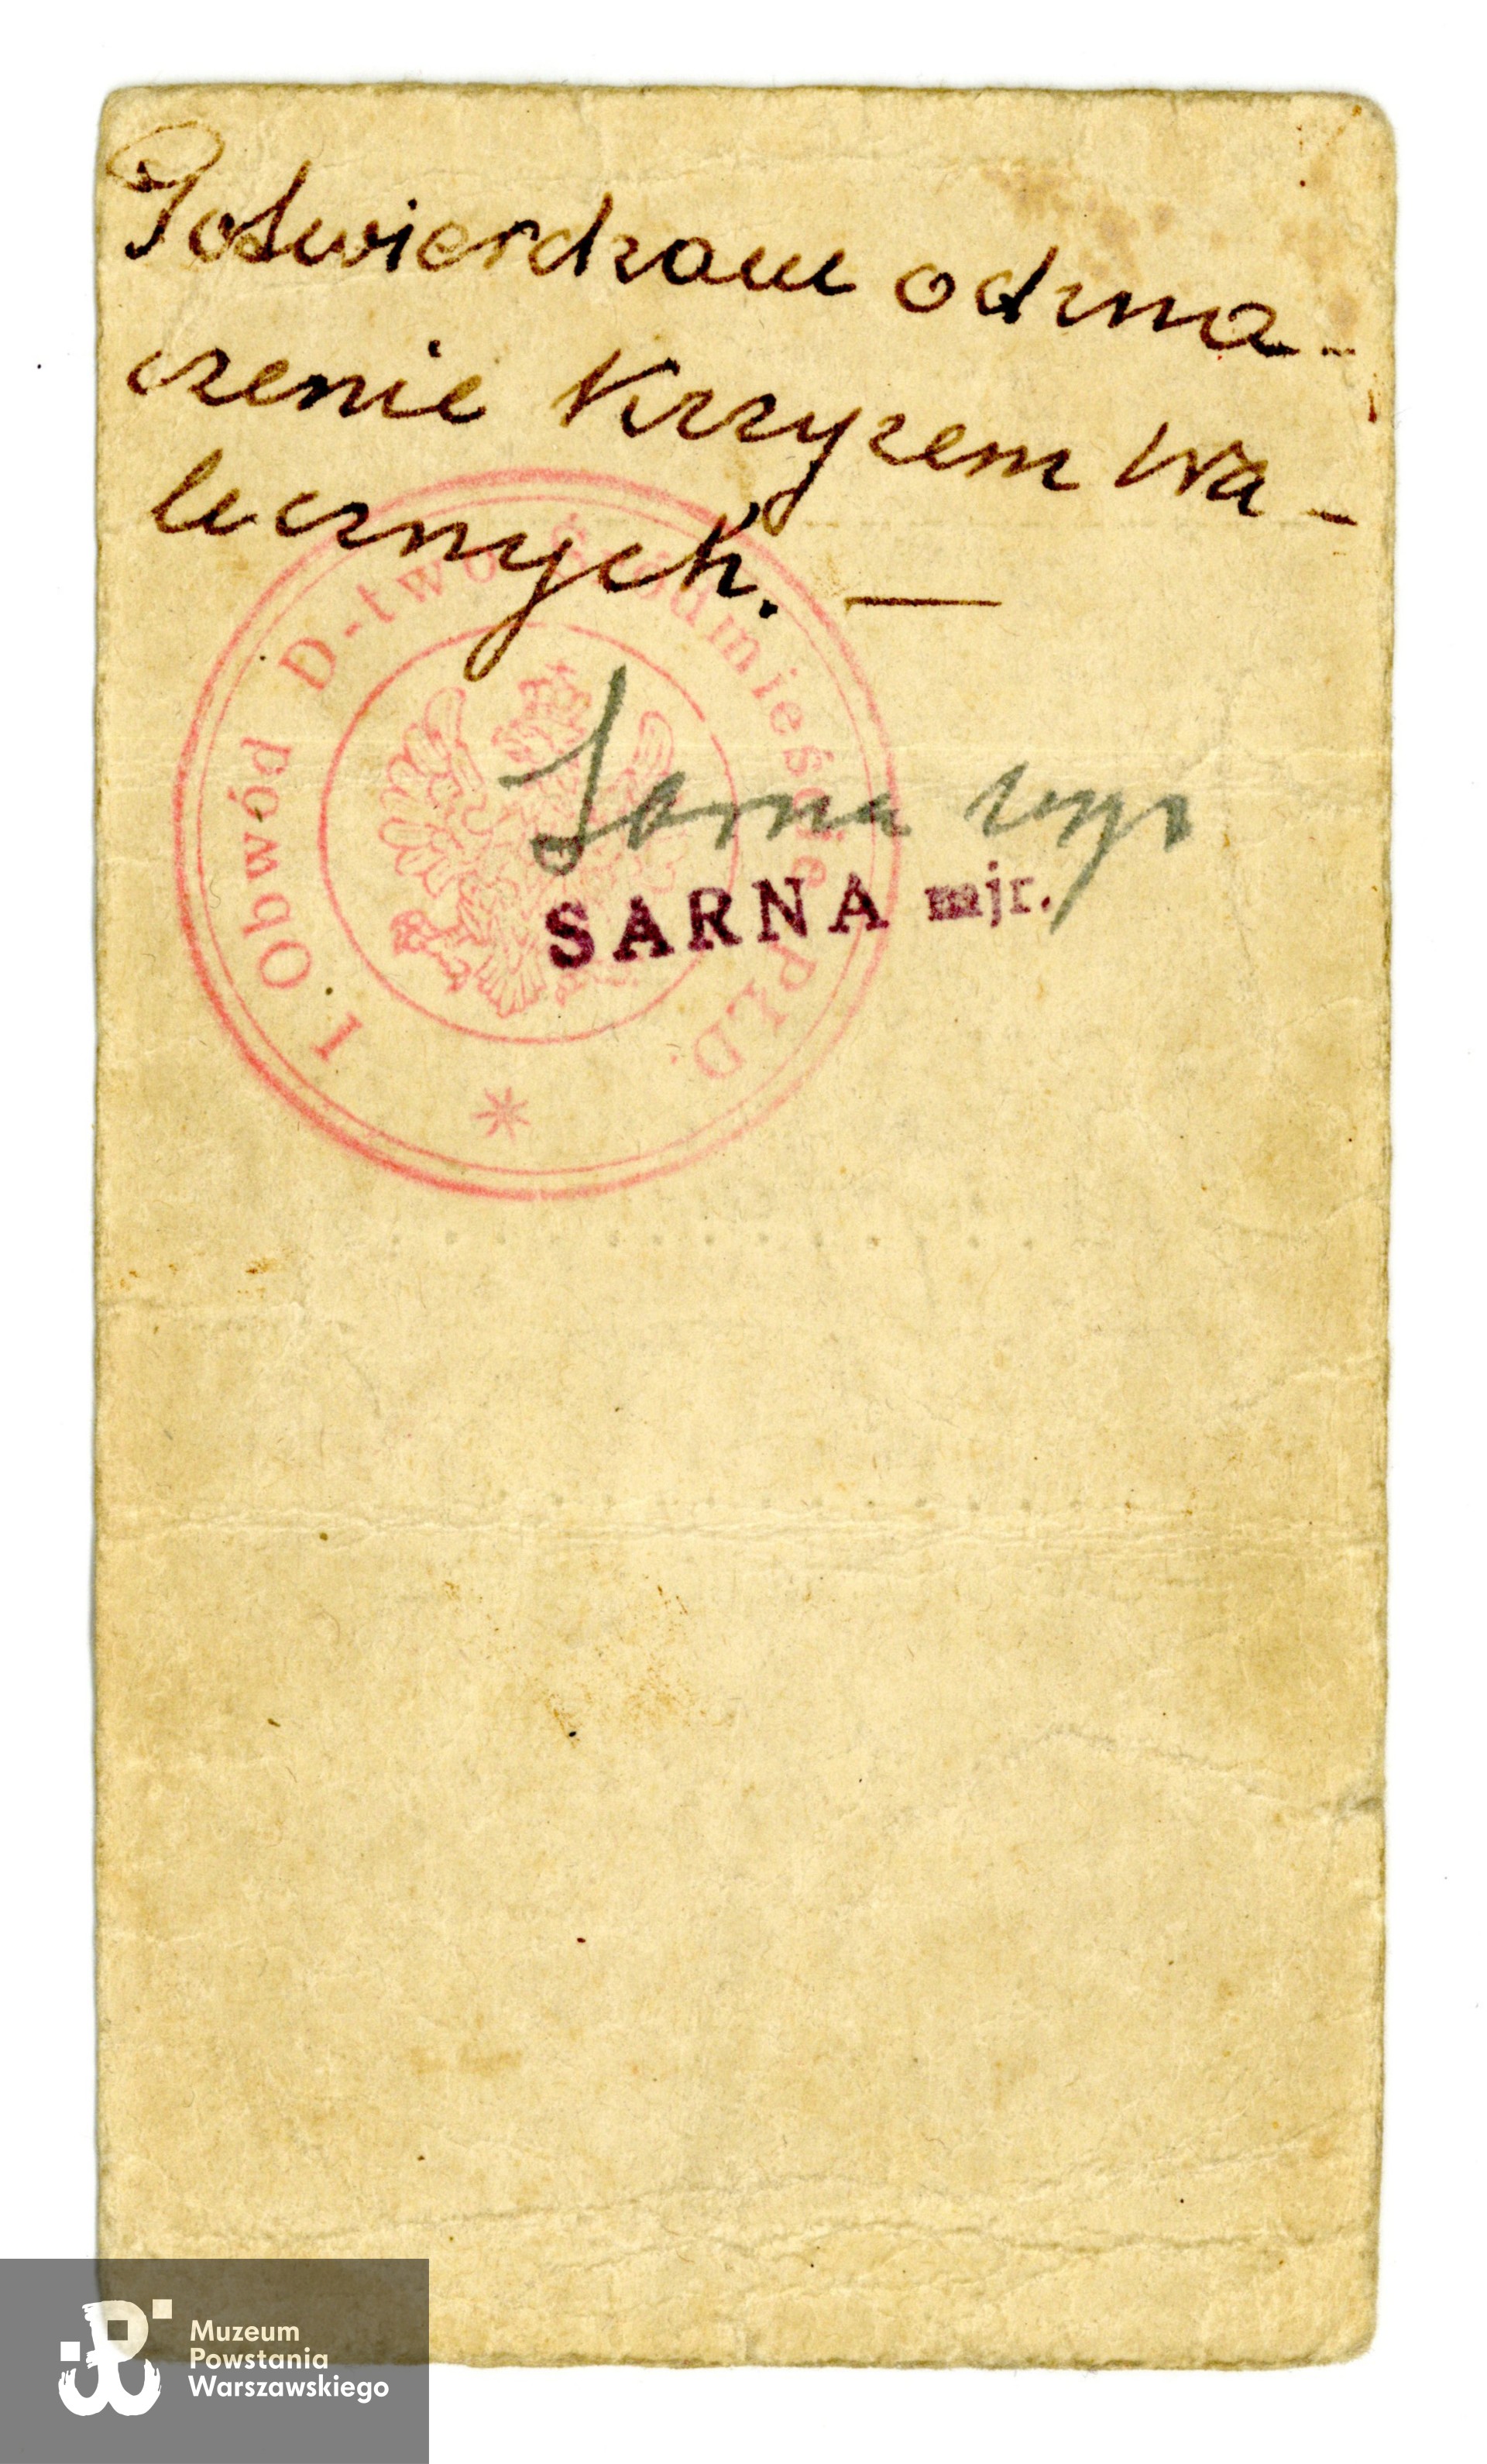 Potwierdzam odzna-
czenie Krzyżem Wa-
lecznych. —
I Obwód D-two Śródmieście PŁD.
Sarna mjr
SARNA mjr.
Muzeum
Powstania
Warszawskiego